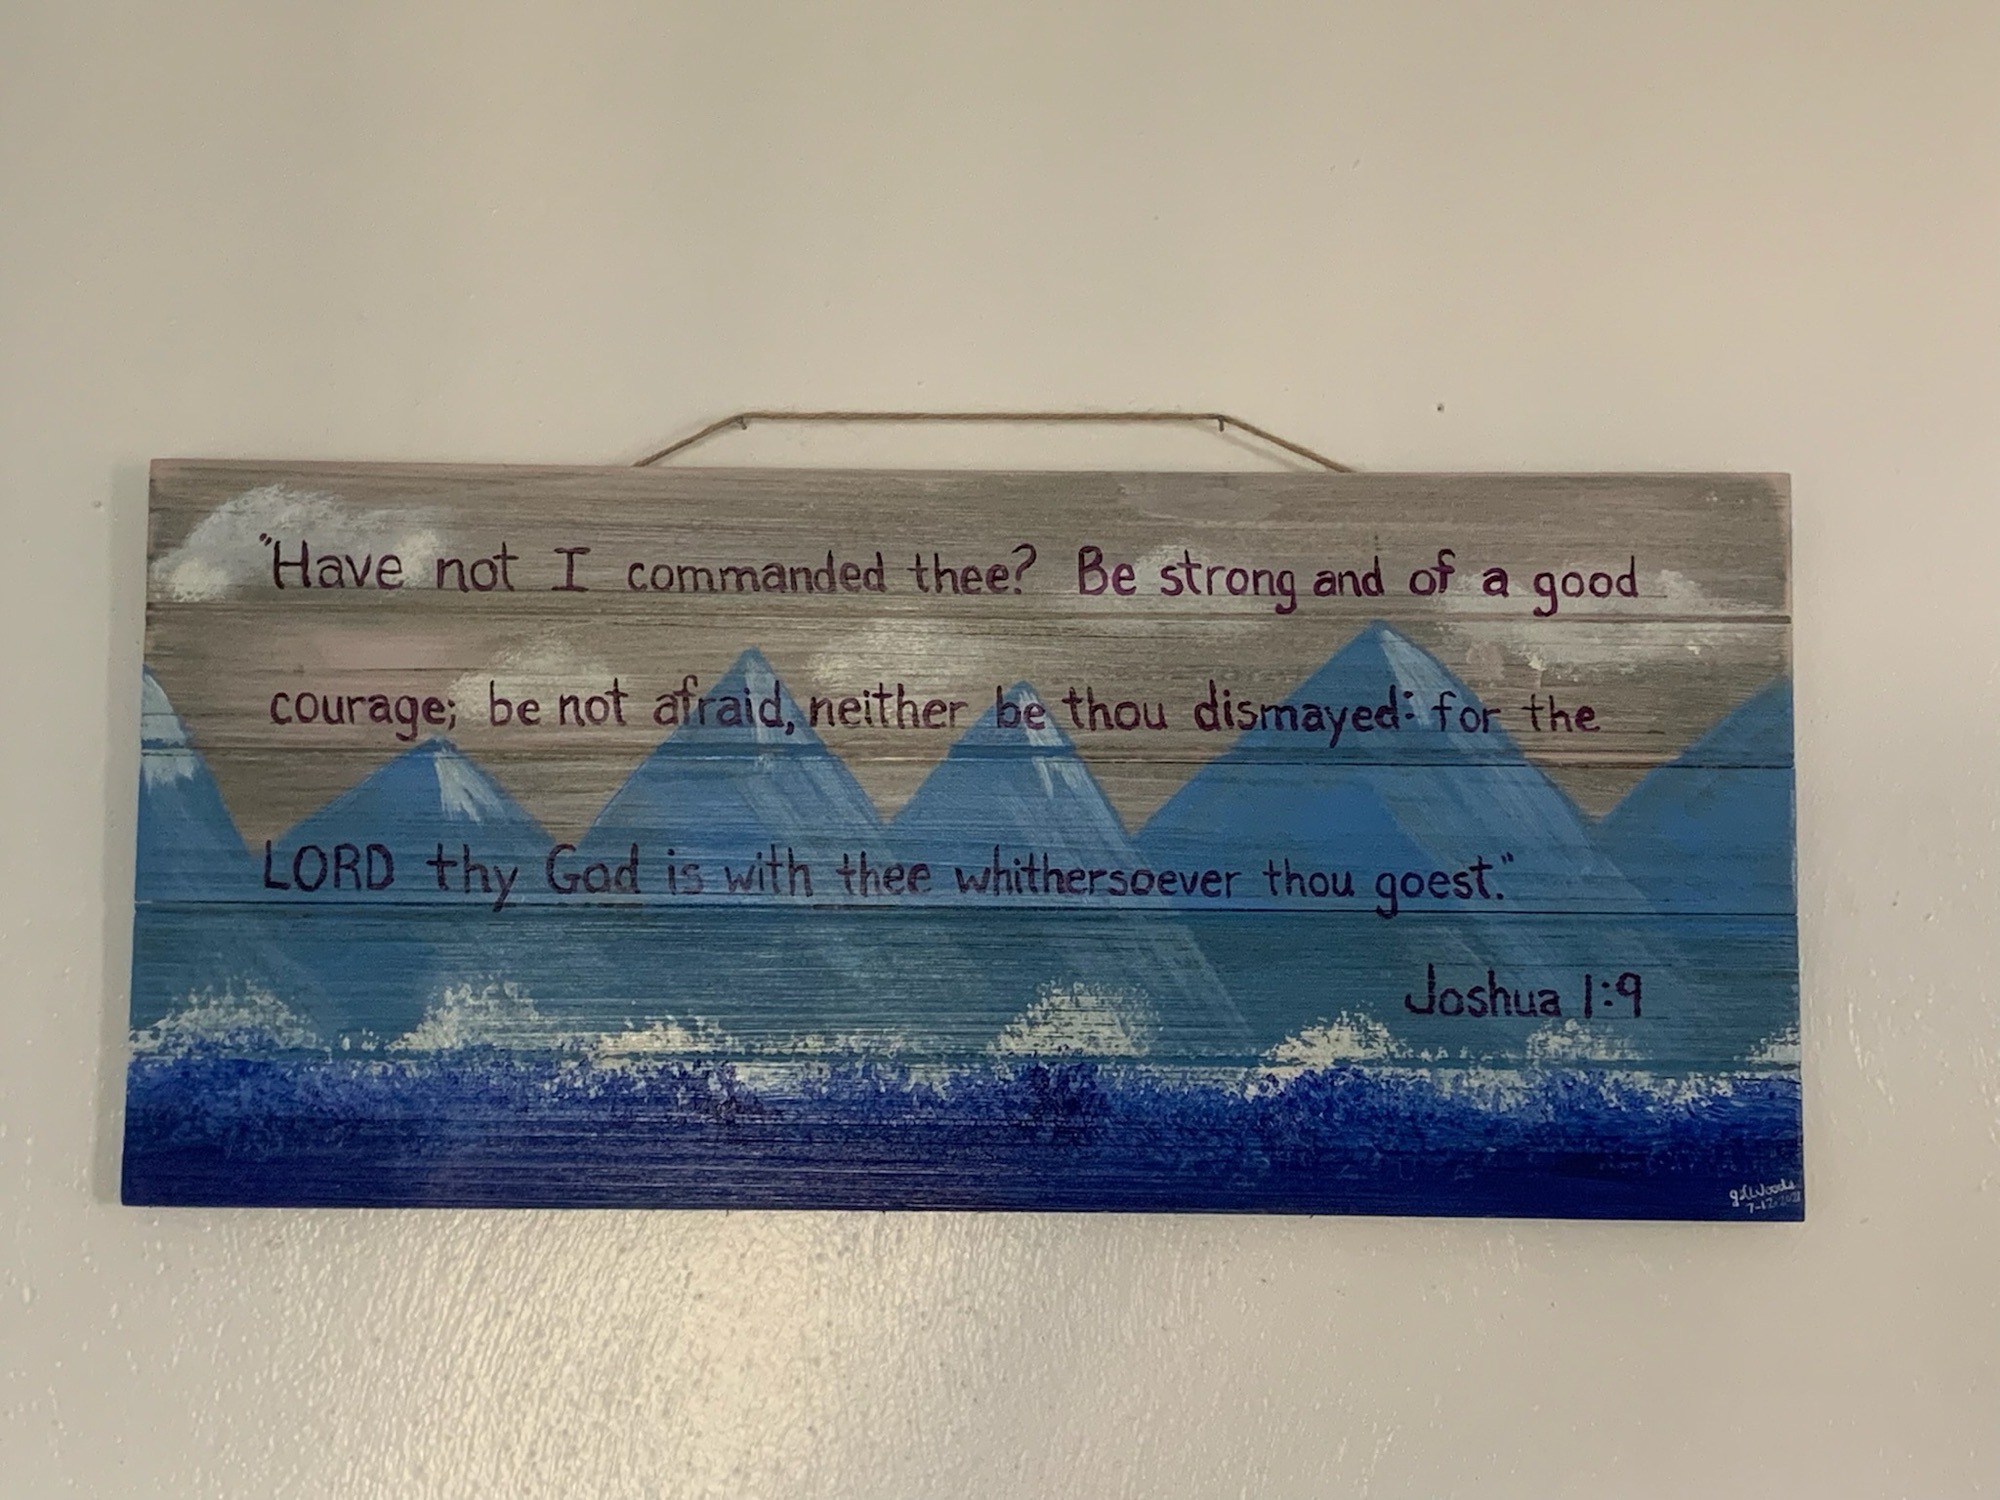 "Have not I commanded thee? Be strong and of a good
courage; be not afraid, neither be thou dismayed: for the
LORD thy God is with thee whithersoever thou goest."
Joshua 1:9